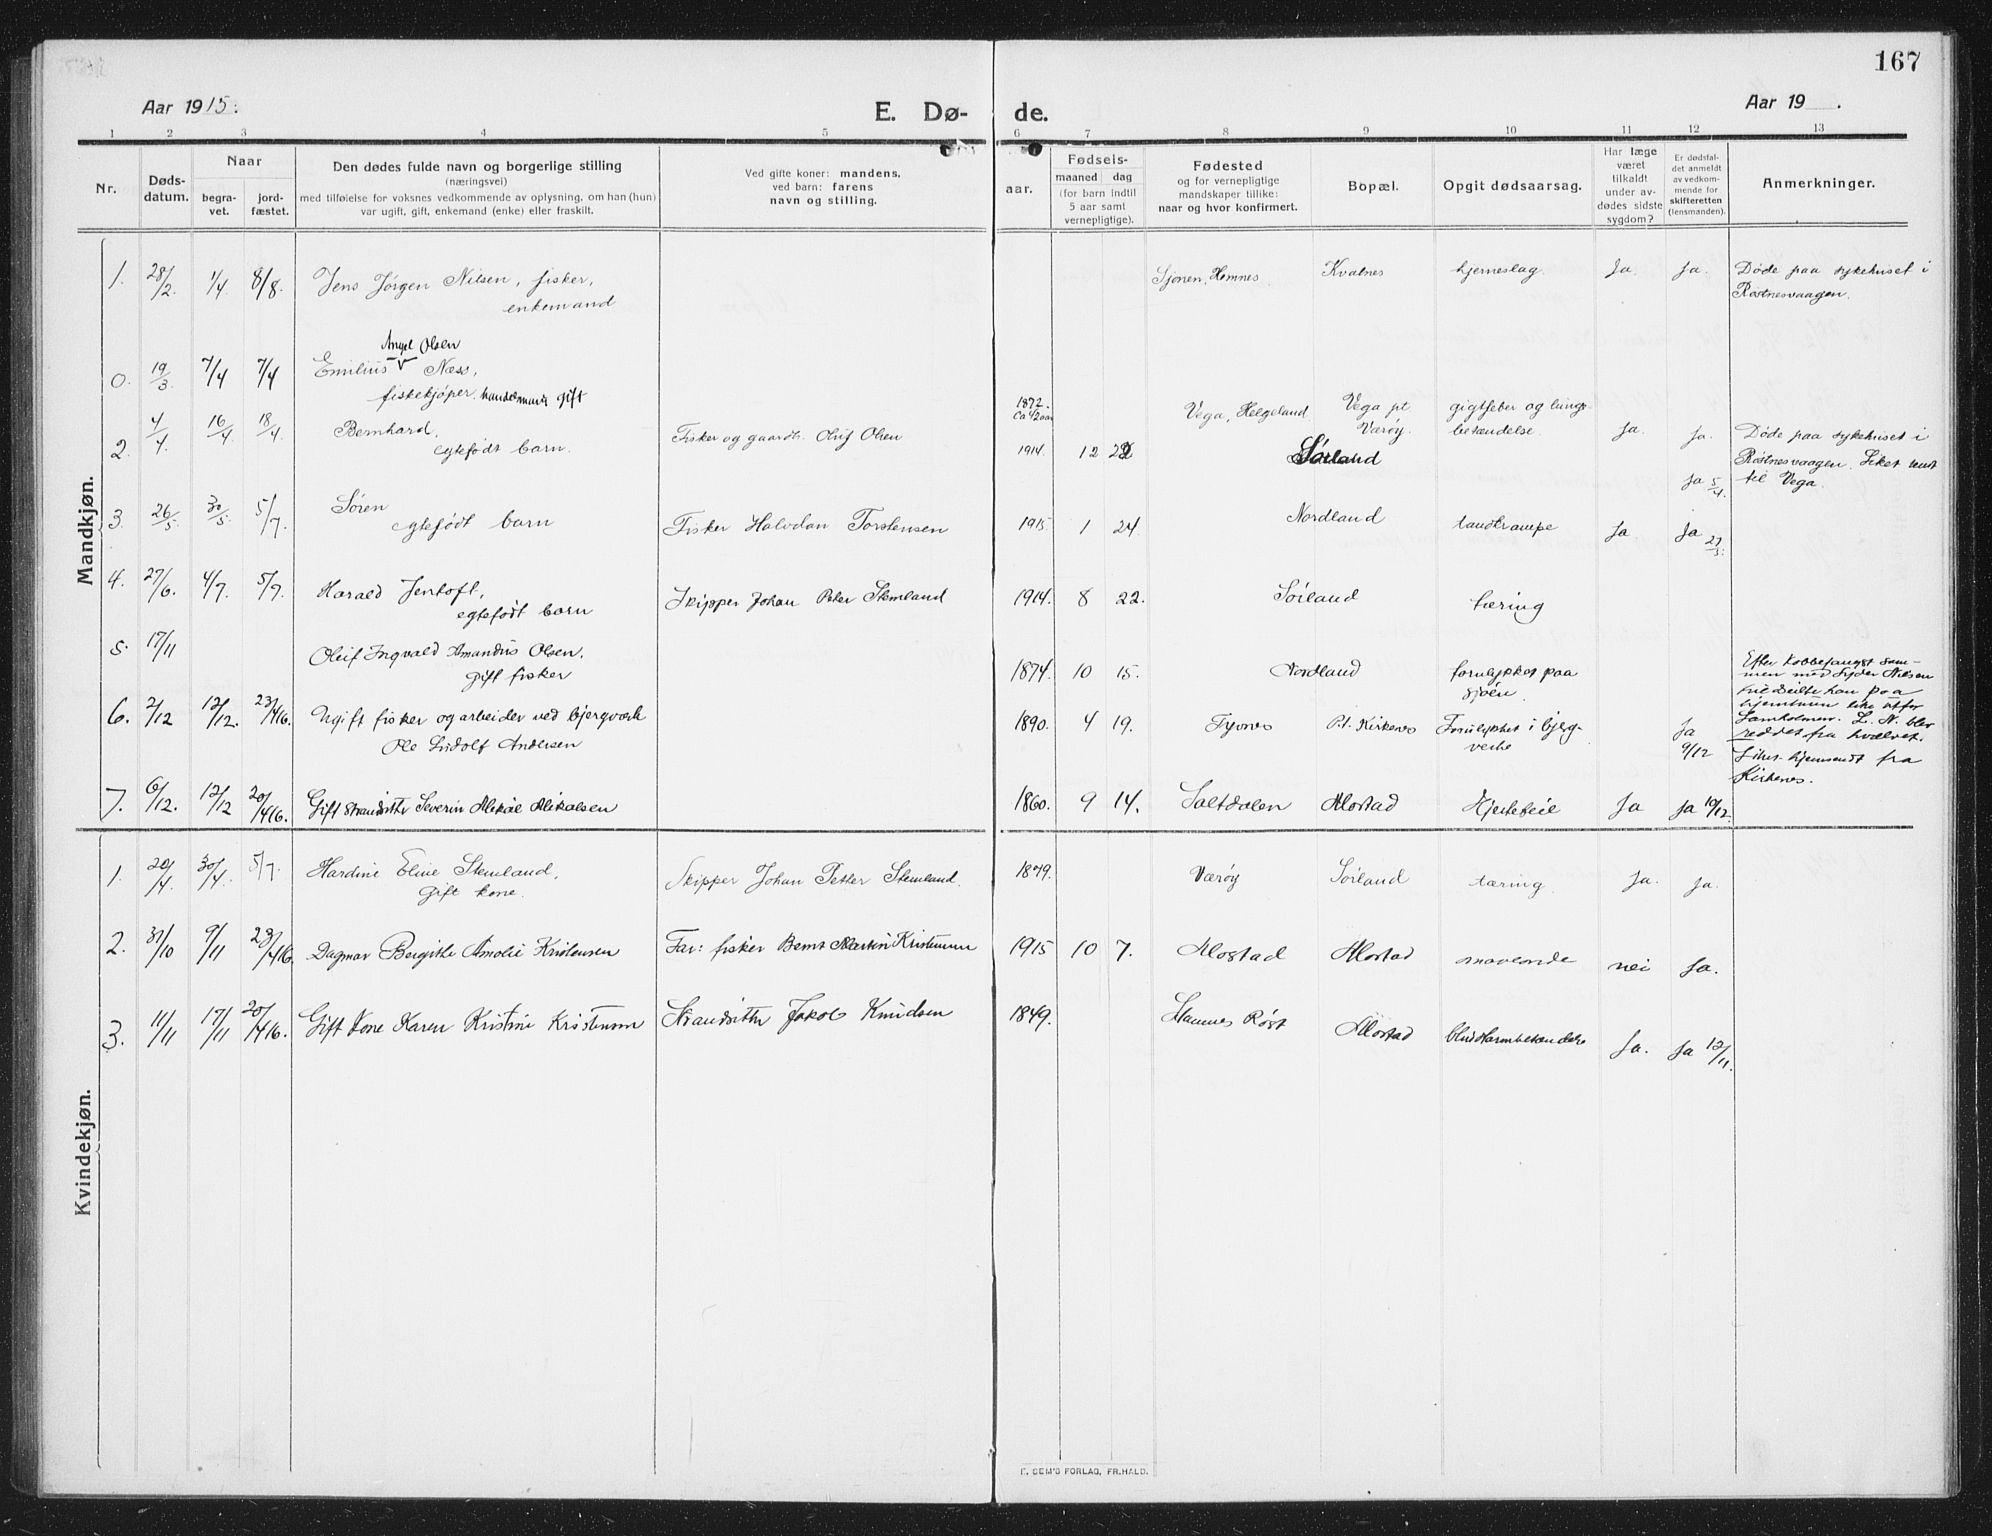 167
Aar 1915.
E. Dø-
de.
Aar 19 .
1 2 3 4 5 6 7 8 9 10 11 12 13
Nr.
Døds-
datum.
Naar
begra-
vet.
jord-
fæstet.
Den dødes fulde navn og borgerlige stilling
(næringsvei)
med tilføielse for voksnes vedkommende av oplysning, om han (hun)
var ugift, gift, enkemand (enke) eller fraskilt.
Ved gifte koner: mandens.
ved barn: farens
navn og stilling.
Fødsels-
aar.
maaned dag
(for barn indtil
5 aar samt
vernepligtige).
Fødested
og for vernepligtige
mandskaper tillike:
naar og hvor konfirmert.
Bopæl.
Opgit dødsaarsag.
Har læge
været
tilkaldt
under av-
dødes sidste
sygdom?
Er dødsfal-
det anmeldt
av vedkom-
mende for
skifteretten
(lensmanden).
Anmerkninger.
Mandkjøn.
1. 28/2. 1/4 8/8. Jens Jørgen Nilsen, fisker,
enkemand
Sjonen, Hemnes Kvalnes hjerneslag Ja. Ja. Døde paa sykehuset i
Røstnesvaagen.
Angel Olsen
0. 19/3. 7/4 7/4 Emilius Næss,
fiskekjøper. handelsmand gift
1872.
Vega, Helgeland Vega pt.
Værøy.
gigtfeber og lunge-
betændelse. Ja. Ja. Døde paa sykehuset i
Røstnesvaagen. Liket sendt
til Vega.
Ja 5/4.
2. 4/4. 16/4 18/4. Bernhard,
egtefødt barn.
Fisker og gaardb. Oluf Olsen
Ca 1/2 aar
1914. 12 22 Sørland
3. 26/5. 30/5. 5/7. Søren
egtefødt barn
Fisker Halvdan Torstensen 1915. 1 24. Nordland tandkrampe Ja. Ja 27/5.
4. 27/6. 4/7. 5/7. Harald Jentoft,
egtefødt barn
Skipper Johan Peter Stemland 1914. 8 22. Sørland tæring
5. 17/11 Oluf Ingvald Amandus Olsen.
gift fisker
1874. 10 15. Nordland forulykket paa
sjøen.
Efter kobbefangst sam-
men med Lyder Nilsen
hjemturen like utfor
L. N. blev
reddet fra hvælvet.
6. 2/12 12/12. 23/416. Ugift fisker og arbeider ved bjergverk
Ole Ludolf Andersen
1890. 4 19. Tyvnes P.t. Kirkenes Forulykket i bjerg-
verke
Ja
9/12
Liket hjemsendt fra
Kirkenes.
7. 6/12. 12/12 20/416. Gift strandsitter Severin Mikal Mikalsen
1860. 9 14. Saltdalen Mostad Hjertefeil Ja Ja 10/12.
Kvindekjøn.
1. 20/4. 30/4. 5/7. Hardine Eline Stemland,
Gift kone.
Skipper Johan Petter Stemland. 1879. Værøy Sørland tæring. Ja. Ja.
2. 31/10 9/11 23/416. Dagmar Bergithe Amalie Kristensen
Far: fisker Bernt Martin Kristensen 1915 10 7. Mostad Mostad maveonde nei Ja.
3. 11/11 17/11 20/416. Gift Kone Karen Kristine Kristensen
Strandsitter Jakob Knudsen 1849. Hamnes Røst Mostad blindtarmbetændelse Ja. Ja 12/11.
E. SEM'S FORLAG, FR.HALD.